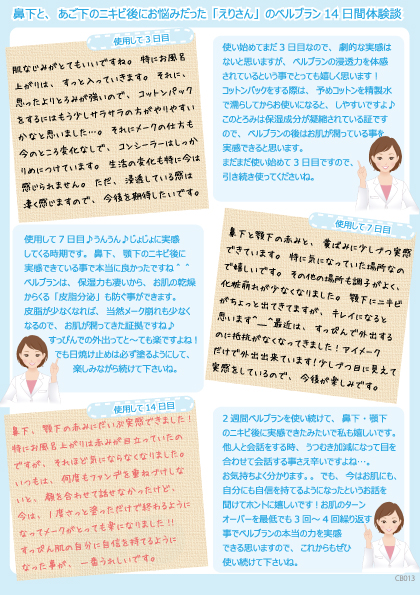 鼻下と、あご下のニキビ後にお悩みだった「えりさん」のベルブラン14日間体験談
使用して3日目
肌なじみがとてもいいですね。特にお風呂
上がりは、すっと入っていきます。それに、
思ったよりとろみが強いので、コットンパック
をするにはもう少しサラサラの方がやりやすい
かなと思いました…。それにメークの仕方も
今のところ変化なしで、コンシーラーはしっか
りめにつけています。生活の変化も特に今は
感じられません。ただ、浸透している感は
凄く感じますので、今後を期待したいです。
使い始めてまだ3日目なので、劇的な実感は
ないと思いますが、ベルブランの浸透力を体感
されているという事でとっても嬉しく思います！
コットンパックをする際は、予めコットンを精製水
で濡らしてからお使いになると、しやすいですよ♪
このとろみは保湿成分が凝縮されている証です
ので、ベルブランの後はお肌が潤っている事を
実感できると思います。
まだまだ使い始めて3日目ですので、
引き続き使ってくださいね。
使用して7日目
鼻下と顎下の赤みと、黄ばみに少しづつ実感
できています。特に気になっていた場所なの
で嬉しいです。その他の場所も調子がよく、
化粧崩れが少なくなりました。顎下にニキビ
がちょっと出てきてますが、キレイになると
思います^__^最近は、すっぴんで外出する
のに抵抗がなくなってきました！アイメーク
だけで外出出来ています！少しづつ目に見えて
実感をしているので、今後が楽しみです。
使用して7日目♪うんうん♪じょじょに実感
してくる時期です。鼻下、顎下のニキビ後に
実感できている事で本当に良かったですね＾＾
ベルブランは、保湿力も凄いから、お肌の乾燥
からくる「皮脂分泌」も防ぐ事ができます。
皮脂が少なくなれば、当然メーク崩れも少なく
なるので、お肌が潤ってきた証拠ですね♪
すっぴんでの外出ってと～ても楽ですよね！
でも日焼け止めは必ず塗るようにして、
楽しみながら続けて下さいね。
使用して14日目
鼻下、顎下の赤みにだいぶ実感できました！
特にお風呂上がりは赤みが目立っていたの
ですが、それほど気にならなくなりました。
いつもは、何度もファンデを重ねづけしな
いと、顔を合わせて話せなかったけど、
今は、1度さっと塗っただけで終わるように
なってメークがとっても楽になりました！！
すっぴん肌の自分に自信を持てるように
なった事が、一番うれしいです。
2週間ベルブランを使い続けて、鼻下・顎下
のニキビ後に実感できたみたいで私も嬉しいです。
他人と会話をする時、うつむき加減になって目を
合わせて会話する事さえ辛いですよね…。
お気持ちよく分かります。。でも、今はお肌にも、
自分にも自信を持てるようになったというお話を
聞けてホントに嬉しいです！お肌のターン
オーバーを最低でも3回～4回繰り返す
事でベルブランの本当の力を実感
できる思いますので、これからもぜひ
使い続けて下さいね。
CB013